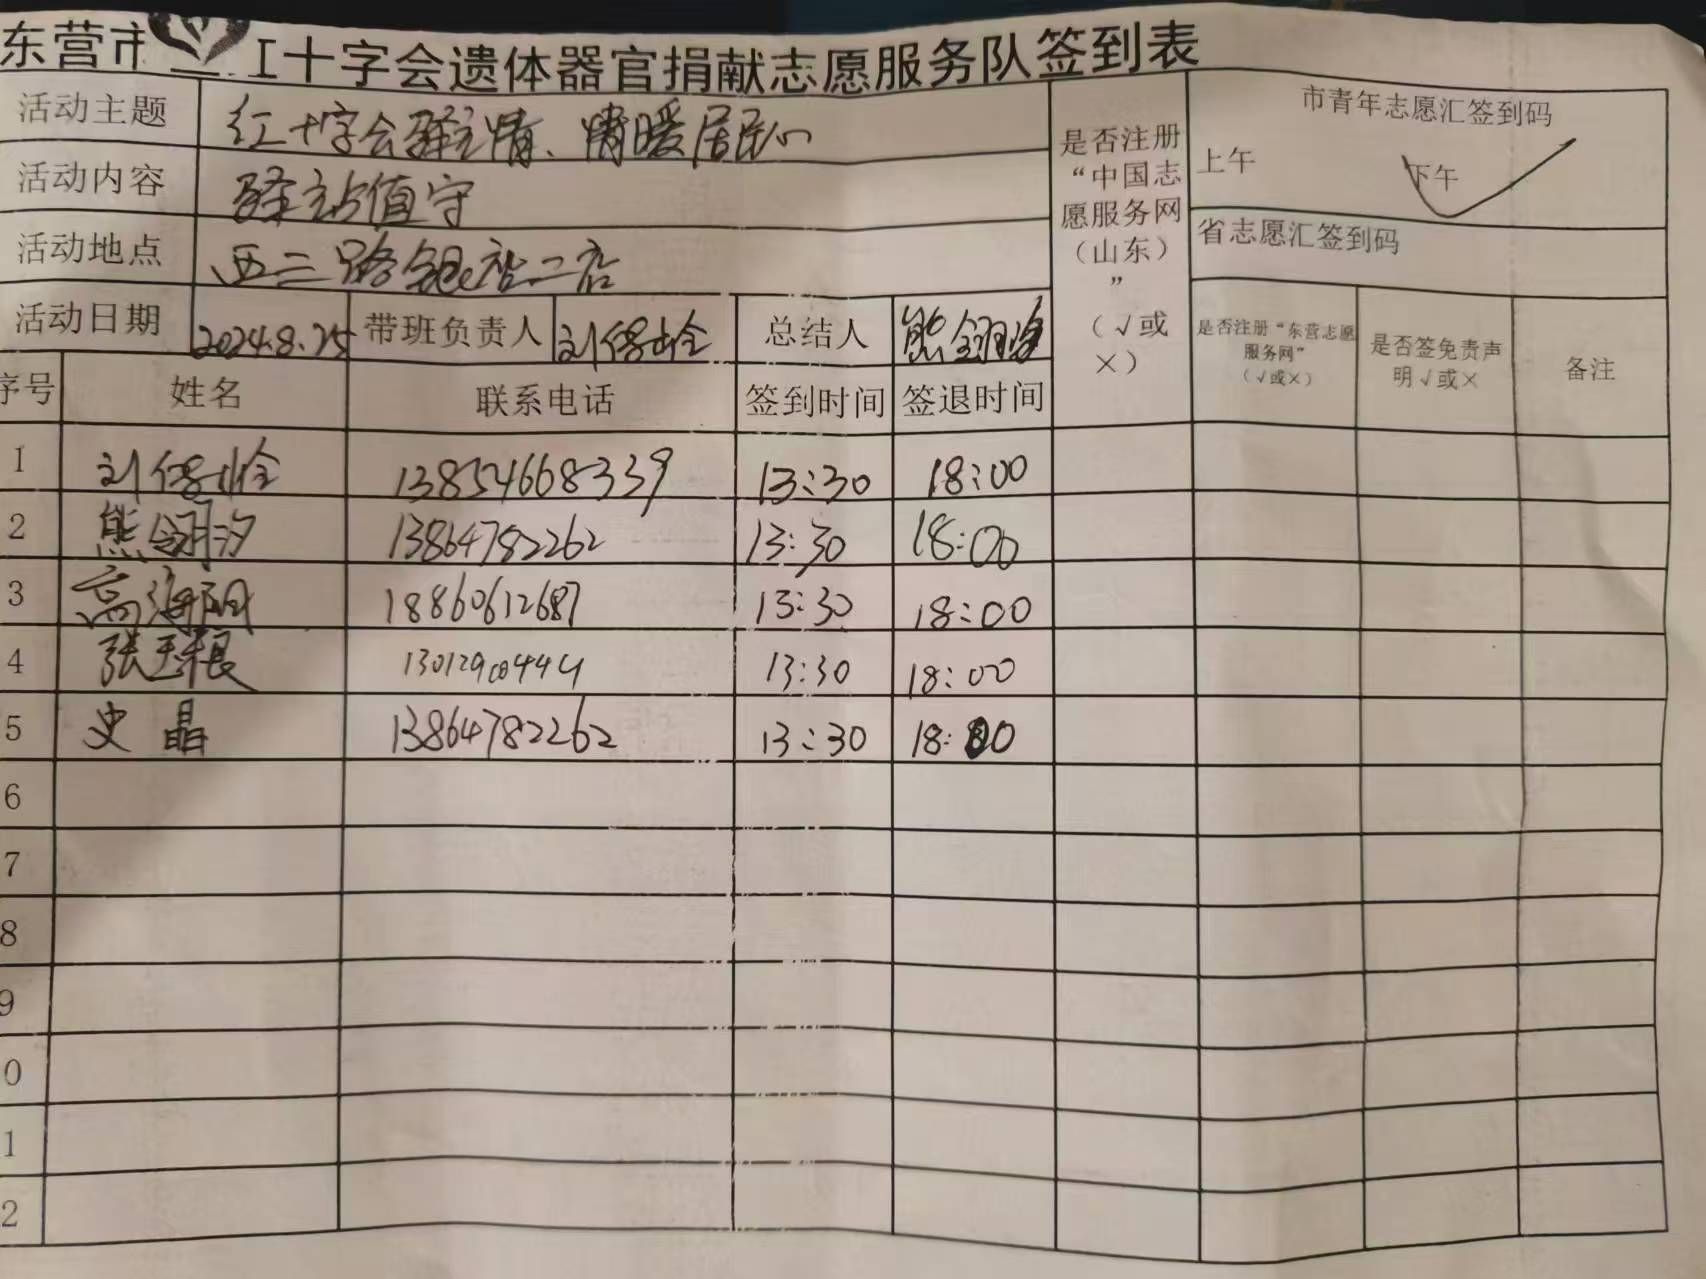 东营市 工十字会遗体器官捐献志愿服务队签到表
活动主题 红十字会驿站情、情暖居民心
市青年志愿汇签到码
上午 下午
活动内容 驿站值守
活动地点 西二路 二店
省志愿汇签到码
是否注册
“中国志
愿服务网
（山东）
”
（√或
×）
活动日期 2024.8.25 带班负责人 刘保 总结人 熊翎汐
是否注册“东营志愿
服务网”
（√或×）
是否签免责声
明√或×
备注
序号 姓名 联系电话 签到时间 签退时间
1 刘保 13854668339 13:30 18:00
2 熊翎汐 13864782262 13:30 18:00
3 高海阳 18860612687 13:30 18:00
4 张玉根 13012900444 13:30 18:00
5 史晶 13864782262 13:30 18:00
6
7
8
9
0
1
2